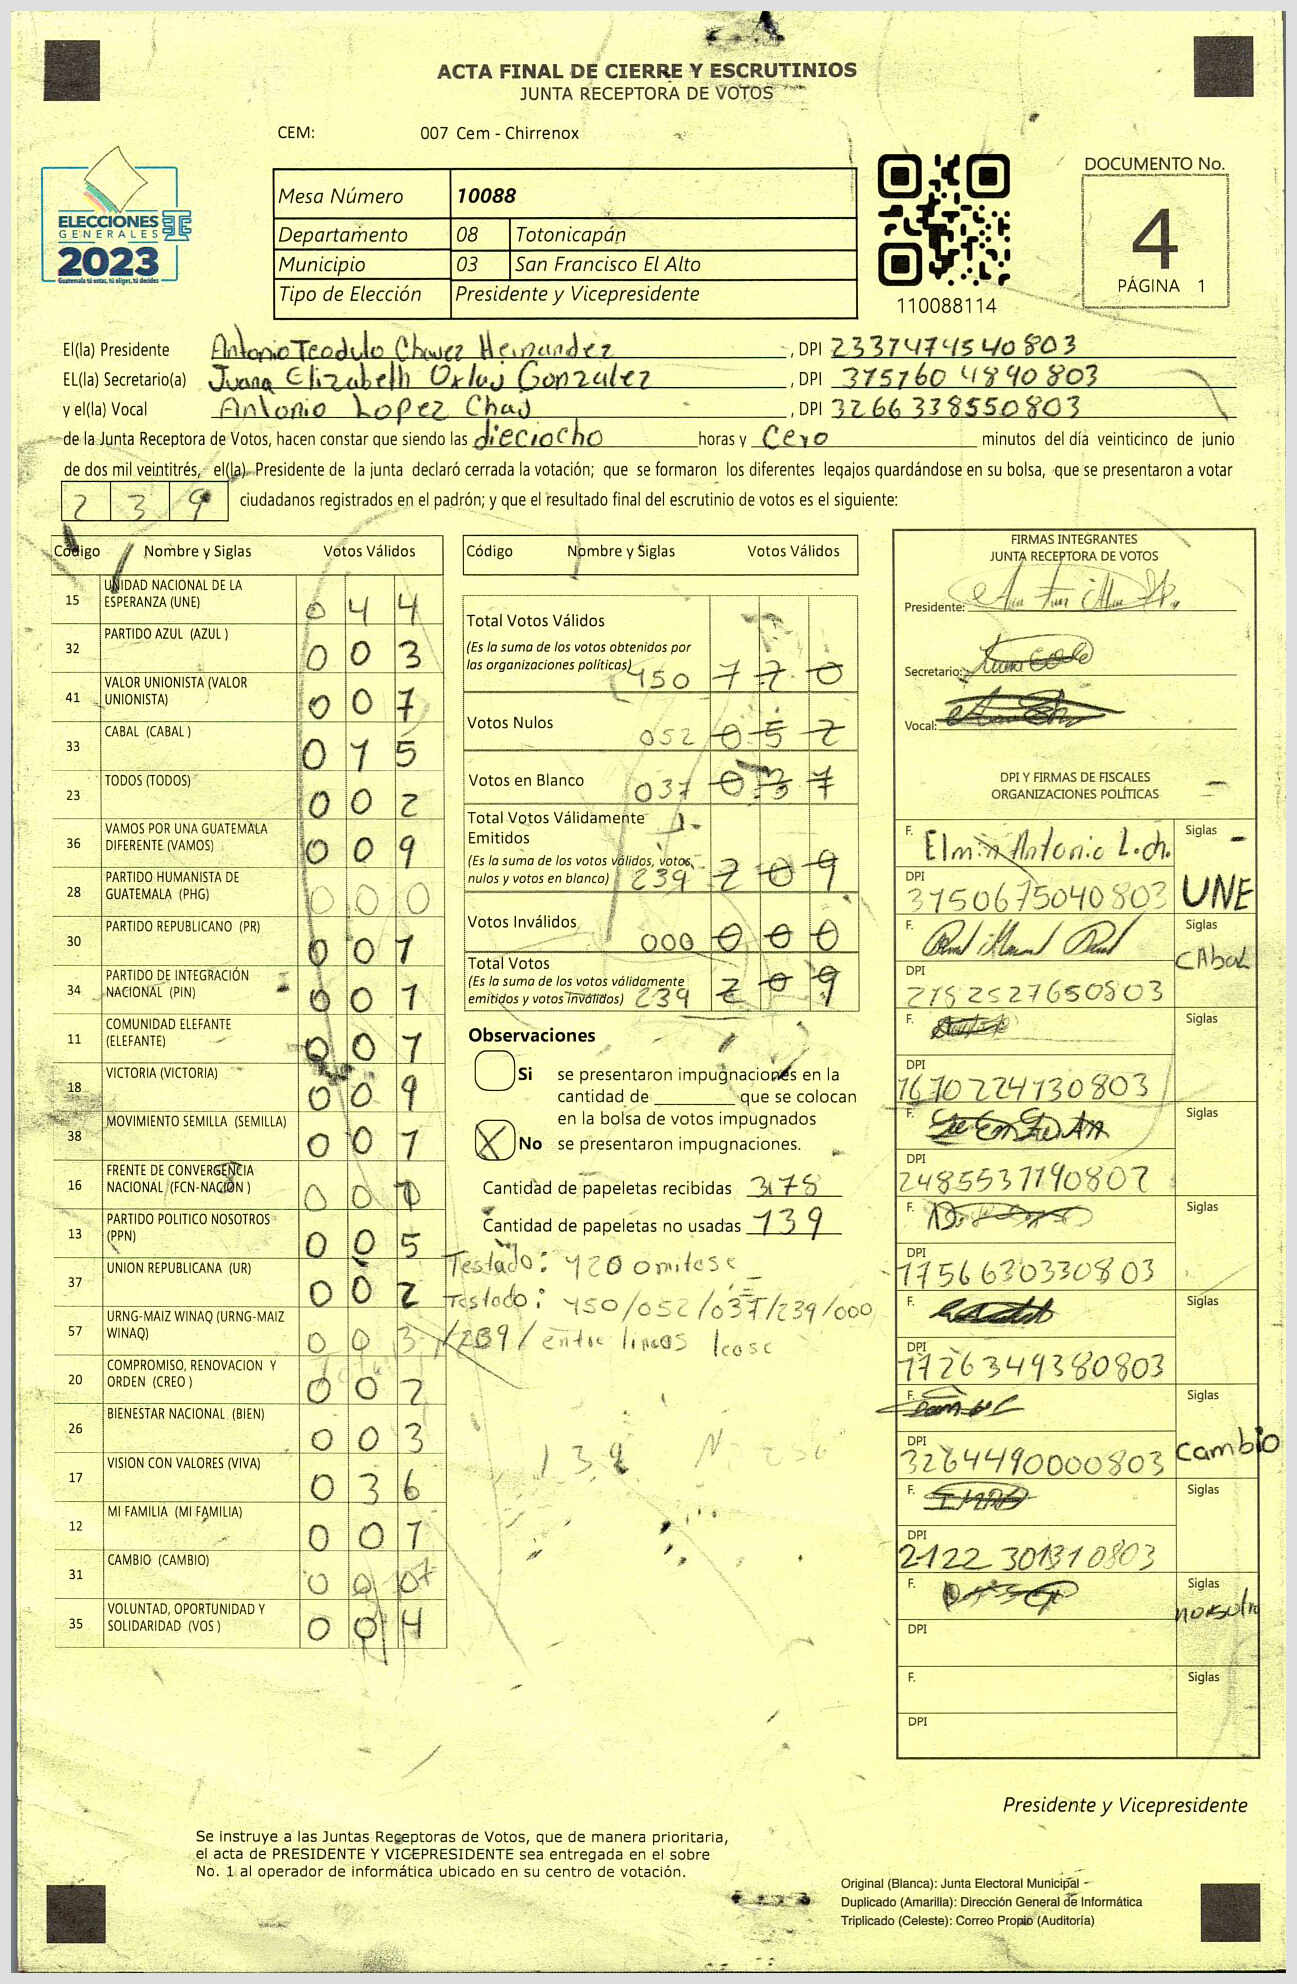 ACTA FINAL DE CIERRE Y ESCRUTINIOS
JUNTA RECEPTORA DE VOTOS
CEM: 007 Cem - Chirrenox
ELECCIONES
GENERALES
2023
Guatemala tú votas, tú eliges, tú decides
Mesa Número 10088
Departamento 08 Totonicapán
Municipio 03 San Francisco El Alto
Tipo de Elección Presidente y Vicepresidente
110088114
DOCUMENTO No.
4
PÁGINA 1
El(la) Presidente Antonio Teodulo Chavez Hernandez, DPI 2337474540803
EL(la) Secretario(a) Juana Elizabeth Oxlaj Gonzalez, DPI 3757604890803
y el(la) Vocal Antonio Lopez Chaj, DPI 3266338550803
de la Junta Receptora de Votos, hacen constar que siendo las dieciocho horas y Cero minutos del día veinticinco de junio
de dos mil veintitrés, el(la) Presidente de la junta declaró cerrada la votación; que se formaron los diferentes legajos quardándose en su bolsa, que se presentaron a votar
239 ciudadanos registrados en el padrón; y que el resultado final del escrutinio de votos es el siguiente:
Código Nombre y Siglas Votos Válidos
15 UNIDAD NACIONAL DE LA ESPERANZA (UNE) 044
32 PARTIDO AZUL (AZUL ) 003
41 VALOR UNIONISTA (VALOR UNIONISTA) 007
33 CABAL (CABAL ) 015
23 TODOS (TODOS) 002
36 VAMOS POR UNA GUATEMALA DIFERENTE (VAMOS) 009
28 PARTIDO HUMANISTA DE GUATEMALA (PHG) 000
30 PARTIDO REPUBLICANO (PR) 001
34 PARTIDO DE INTEGRACIÓN NACIONAL (PIN) 001
11 COMUNIDAD ELEFANTE (ELEFANTE) 001
18 VICTORIA (VICTORIA) 009
38 MOVIMIENTO SEMILLA (SEMILLA) 001
16 FRENTE DE CONVERGENCIA NACIONAL (FCN-NACION ) 00
13 PARTIDO POLITICO NOSOTROS (PPN) 005
37 UNION REPUBLICANA (UR) 002
57 URNG-MAIZ WINAQ (URNG-MAIZ WINAQ) 003
20 COMPROMISO, RENOVACION Y ORDEN (CREO ) 002
26 BIENESTAR NACIONAL (BIEN) 003
17 VISION CON VALORES (VIVA) 036
12 MI FAMILIA (MI FAMILIA) 001
31 CAMBIO (CAMBIO) 00
35 VOLUNTAD, OPORTUNIDAD Y SOLIDARIDAD (VOS ) 004
Código Nombre y Siglas Votos Válidos
Total Votos Válidos
(Es la suma de los votos obtenidos por
las organizaciones políticas) 150 120
Votos Nulos 052 052
Votos en Blanco 037 037
Total Votos Válidamente
Emitidos
(Es la suma de los votos válidos, votos
nulos y votos en blanco) 239 209
Votos Inválidos 000 000
Total Votos
(Es la suma de los votos válidamente
emitidos y votos inválidos) 239 209
Observaciones
Si se presentaron impugnaciones en la
cantidad de ________ que se colocan
en la bolsa de votos impugnados
X No se presentaron impugnaciones.
Cantidad de papeletas recibidas 378
Cantidad de papeletas no usadas 139
Testado: 120 omitase
Testado: 150/052/037/239/000
/239/ entre lineas lease
FIRMAS INTEGRANTES
JUNTA RECEPTORA DE VOTOS
Presidente:
Secretario:
Vocal:
DPI Y FIRMAS DE FISCALES
ORGANIZACIONES POLÍTICAS
F. Elmin Antonio L.ch. Siglas
DPI 3750675040803 UNE
F. Siglas
DPI 2152527650803 CAbaL
F. Siglas
DPI 1670224130803
F. Siglas
DPI 2485537190802
F. Siglas
DPI 1756630330803
F. Siglas
DPI 1726349380803
F. Siglas
DPI 3264490000803 cambio
F. Siglas
DPI 2122 301310803
F. Siglas
DPI
F. Siglas
DPI
Presidente y Vicepresidente
Se instruye a las Juntas Receptoras de Votos, que de manera prioritaria,
el acta de PRESIDENTE Y VICEPRESIDENTE sea entregada en el sobre
No. 1 al operador de informática ubicado en su centro de votación.
Original (Blanca): Junta Electoral Municipal
Duplicado (Amarilla): Dirección General de Informática
Triplicado (Celeste): Correo Propio (Auditoría)